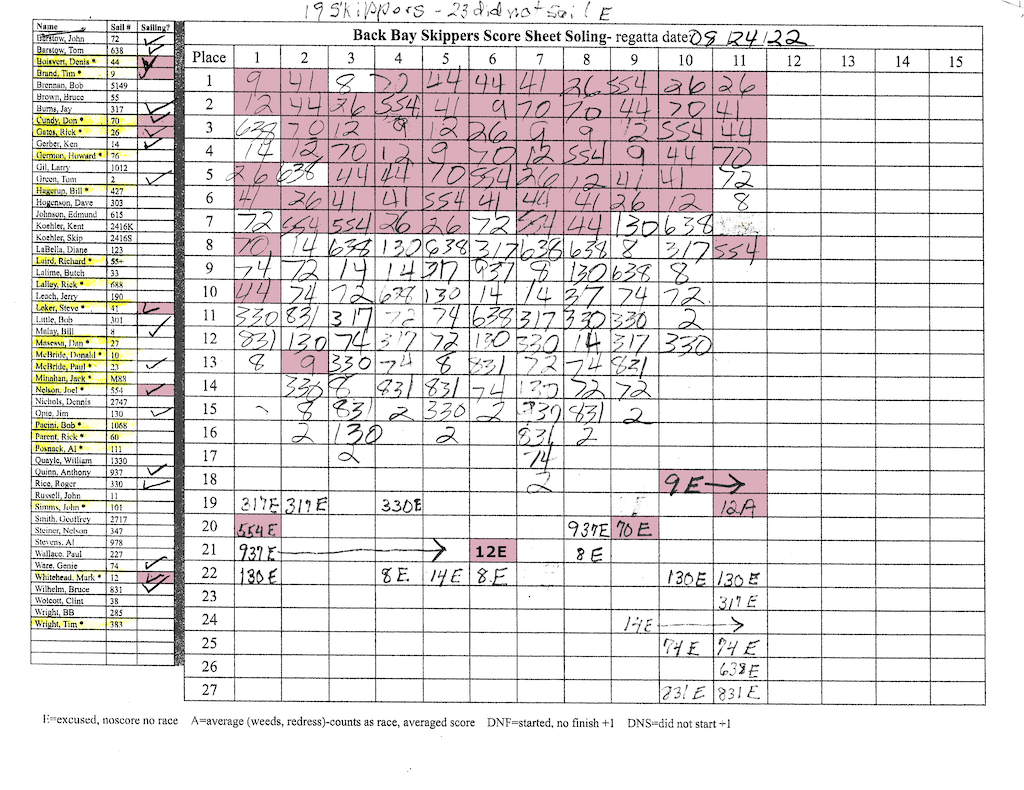 19 Skippers - 23 did not sail E
Name Sail # Sailing?
Back Bay Skippers Score Sheet Soling- regatta date 08/24/22
Barstow, John 72 ✓
Barstow, Tom 638 ✓
Boisvert, Denis * 44 ✓
Brand, Tim * 9 ✓
Brennan, Bob 5149
Brown, Bruce 55
Burns, Jay 317 ✓
Cundy, Don * 70 ✓
Gates, Rick * 26 ✓
Gerber, Ken 14 ✓
Germon, Howard * 76
Gil, Larry 1012
Green, Tom 2 ✓
Hagerup, Bill * 427
Hogenson, Dave 303
Johnson, Edmund 615
Koehler, Kent 2416K
Koehler, Skip 2416S
LaBella, Diane 123
Laird, Richard * 55+
Lalime, Butch 33
Lalley, Rick * 688
Leach, Jerry 190
Leker, Steve * 41 ✓
Little, Bob 301
Malay, Bill 8 ✓
Masessa, Dan * 27
McBride, Donald * 10
McBride, Paul * 23 ✓
Minahan, Jack * M88
Nelson, Joel * 554 ✓
Nichols, Dennis 2747
Opie, Jim 130 ✓
Pacini, Bob * 1068
Parent, Rick * 60
Posnack, Al * 111
Quayle, William 1330
Quinn, Anthony 937 ✓
Rice, Roger 330 ✓
Russell, John 11
Simms, John * 101
Smith, Geoffrey 2717
Steiner, Nelson 347
Stevens, Al 978
Wallace, Paul 227
Ware, Genie 74 ✓
Whitehead, Mark * 12 ✓
Wilhelm, Bruce 831 ✓
Wolcott, Clint 38
Wright, BB 285
Wright, Tim * 383
Place 1 2 3 4 5 6 7 8 9 10 11 12 13 14 15
1 9 41 8 72 44 44 41 26 554 26 26
2 12 44 26 554 41 9 70 70 44 70 41
3 638 70 12 9 12 26 9 9 12 554 44
4 14 12 70 12 9 70 12 554 9 44 70
5 26 638 44 44 70 554 26 12 41 41 72
6 41 26 41 41 554 41 44 41 26 12 8
7 72 554 554 26 26 72 554 44 130 638
8 70 14 638 130 638 317 638 638 8 317 554
9 74 72 14 14 317 937 8 130 638 8
10 44 74 72 638 130 14 14 37 74 72
11 330 831 317 72 74 638 317 330 330 2
12 831 130 74 317 72 130 330 14 317 330
13 8 9 330 74 8 831 72 74 831
14 330 8 831 831 74 130 72 72
15 8 831 2 330 2 937 831 2
16 2 130 2 831 2
17 2 74
18 2 9E →
19 317E 317E 330E 12A
20 554E 937E 70E
21 937E → 12E 8E
22 130E 8E. 14E 8.E 130E 130E
23 317E
24 14E →
25 74E 74E
26 638E
27 831E 831E
E=excused, noscore no race A=average (weeds, redress)-counts as race, averaged score DNF=started, no finish +1 DNS=did not start +1